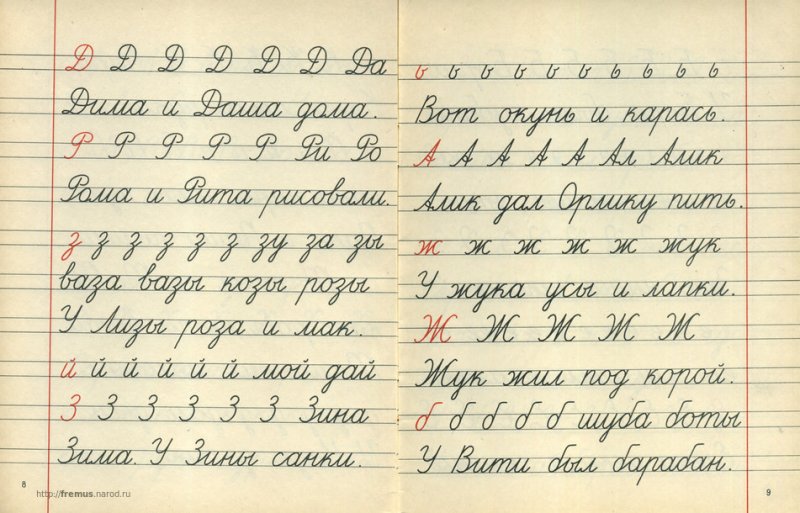 Д Д Д Д Д Д Да
Дима и Даша дома.
Р Р Р Р Р Ри Ро
Рома и Рита рисовали.
з з з з з з зу за зы
ваза вазы козы розы
У Лизы роза и мак.
й й й й й й мой дай
З З З З З З Зина
Зима. У Зины санки.
8
http://fremus.narod.ru
ь ь ь ь ь ь ь ь ь ь
Вот окунь и карась.
А А А А А Ал Алик
Алик дал Орлику пить.
ж ж ж ж ж жук
У жука усы и лапки.
Ж Ж Ж Ж Ж
Жук жил под корой.
б б б б б шуба боты
У Вити был барабан.
9